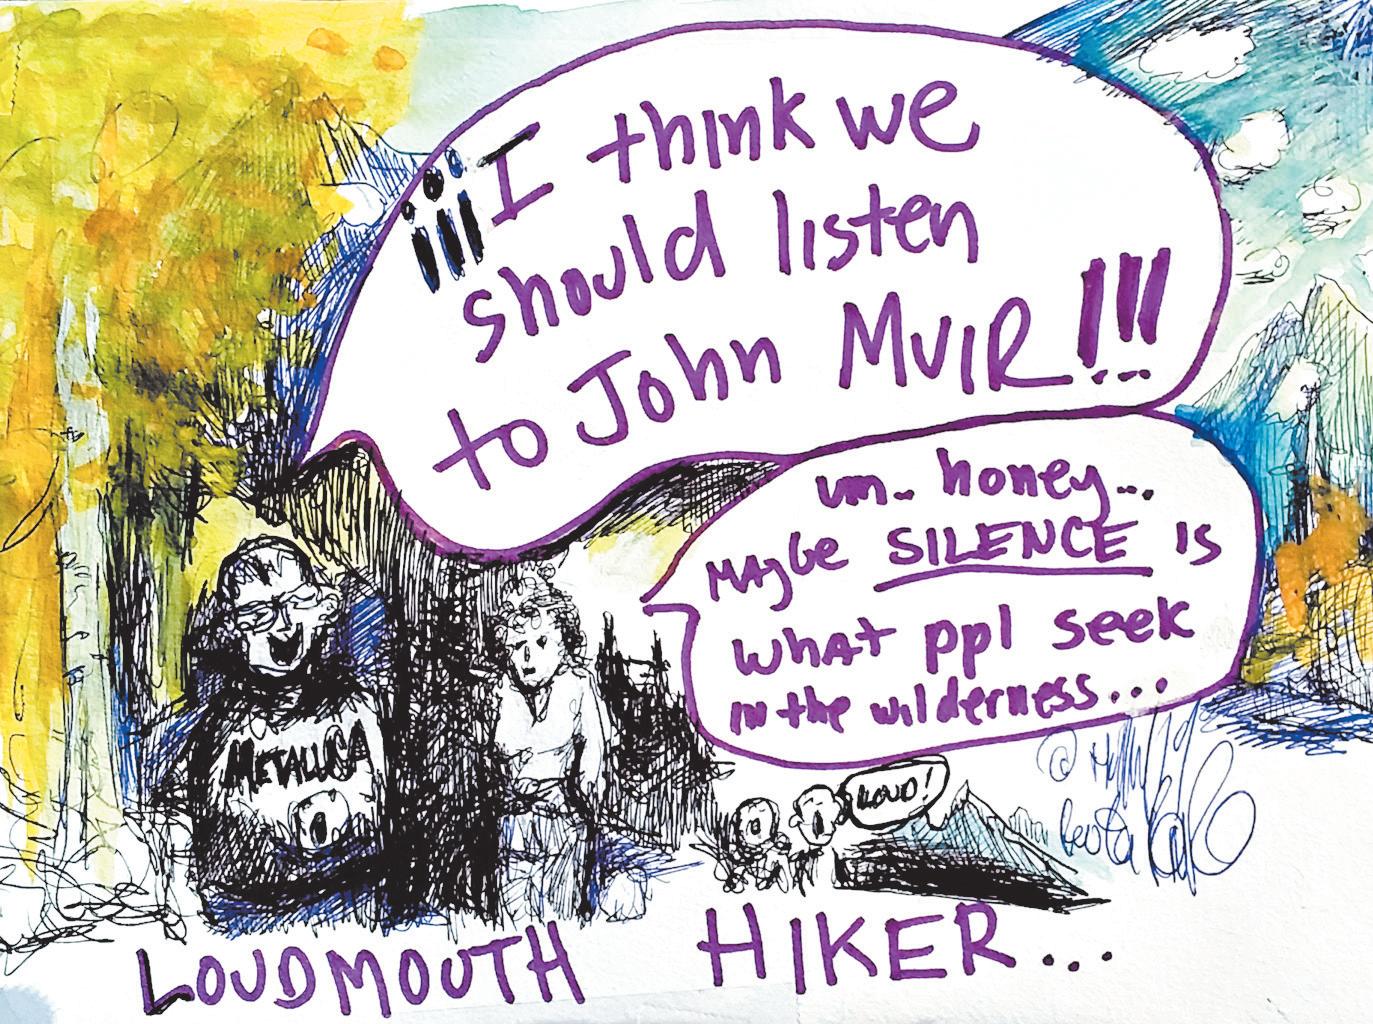 ¡¡¡I think we
should listen
to John MUIR!!!
um.. honey...
MAybe SILENCE is
what ppl seek
in the wilderness...
METALLICA
LOUD!
LOUDMOUTH HIKER...